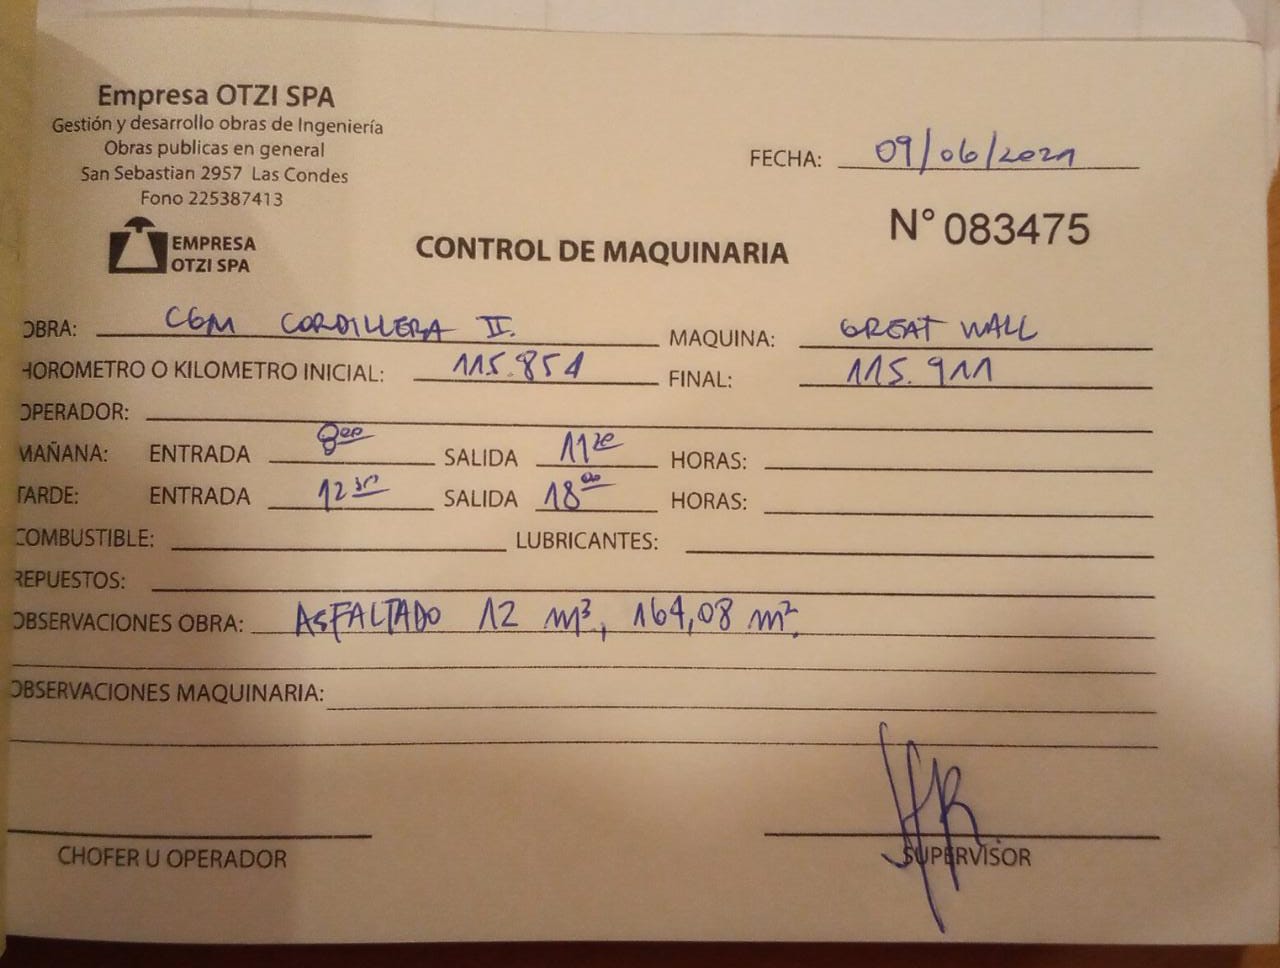 Empresa OTZI SPA
Gestión y desarrollo obras de Ingeniería
Obras publicas en general
San Sebastian 2957 Las Condes
Fono 225387413
FECHA: 09/06/2021
N° 083475
EMPRESA
OTZI SPA
CONTROL DE MAQUINARIA
OBRA: CGM CORDILLERA II. MAQUINA: GREAT WALL
HOROMETRO O KILOMETRO INICIAL: 115.851 FINAL: 115.911
OPERADOR:
MAÑANA: ENTRADA 8:00 SALIDA 11:20 HORAS:
TARDE: ENTRADA 12:30 SALIDA 18:00 HORAS:
COMBUSTIBLE: LUBRICANTES:
REPUESTOS:
OBSERVACIONES OBRA: ASFALTADO 12 m³, 164,08 m².
OBSERVACIONES MAQUINARIA:
CHOFER U OPERADOR SUPERVISOR